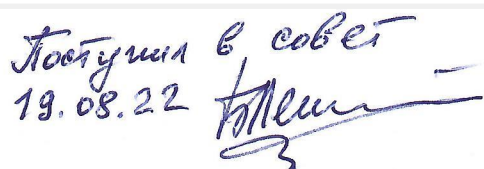 Поступил в совет
19.08.22